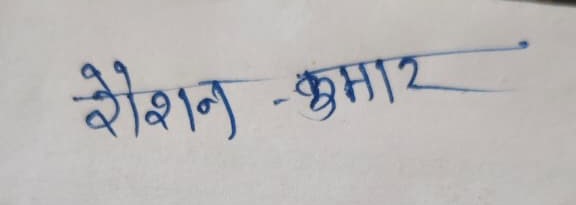 रौशन - कुमार